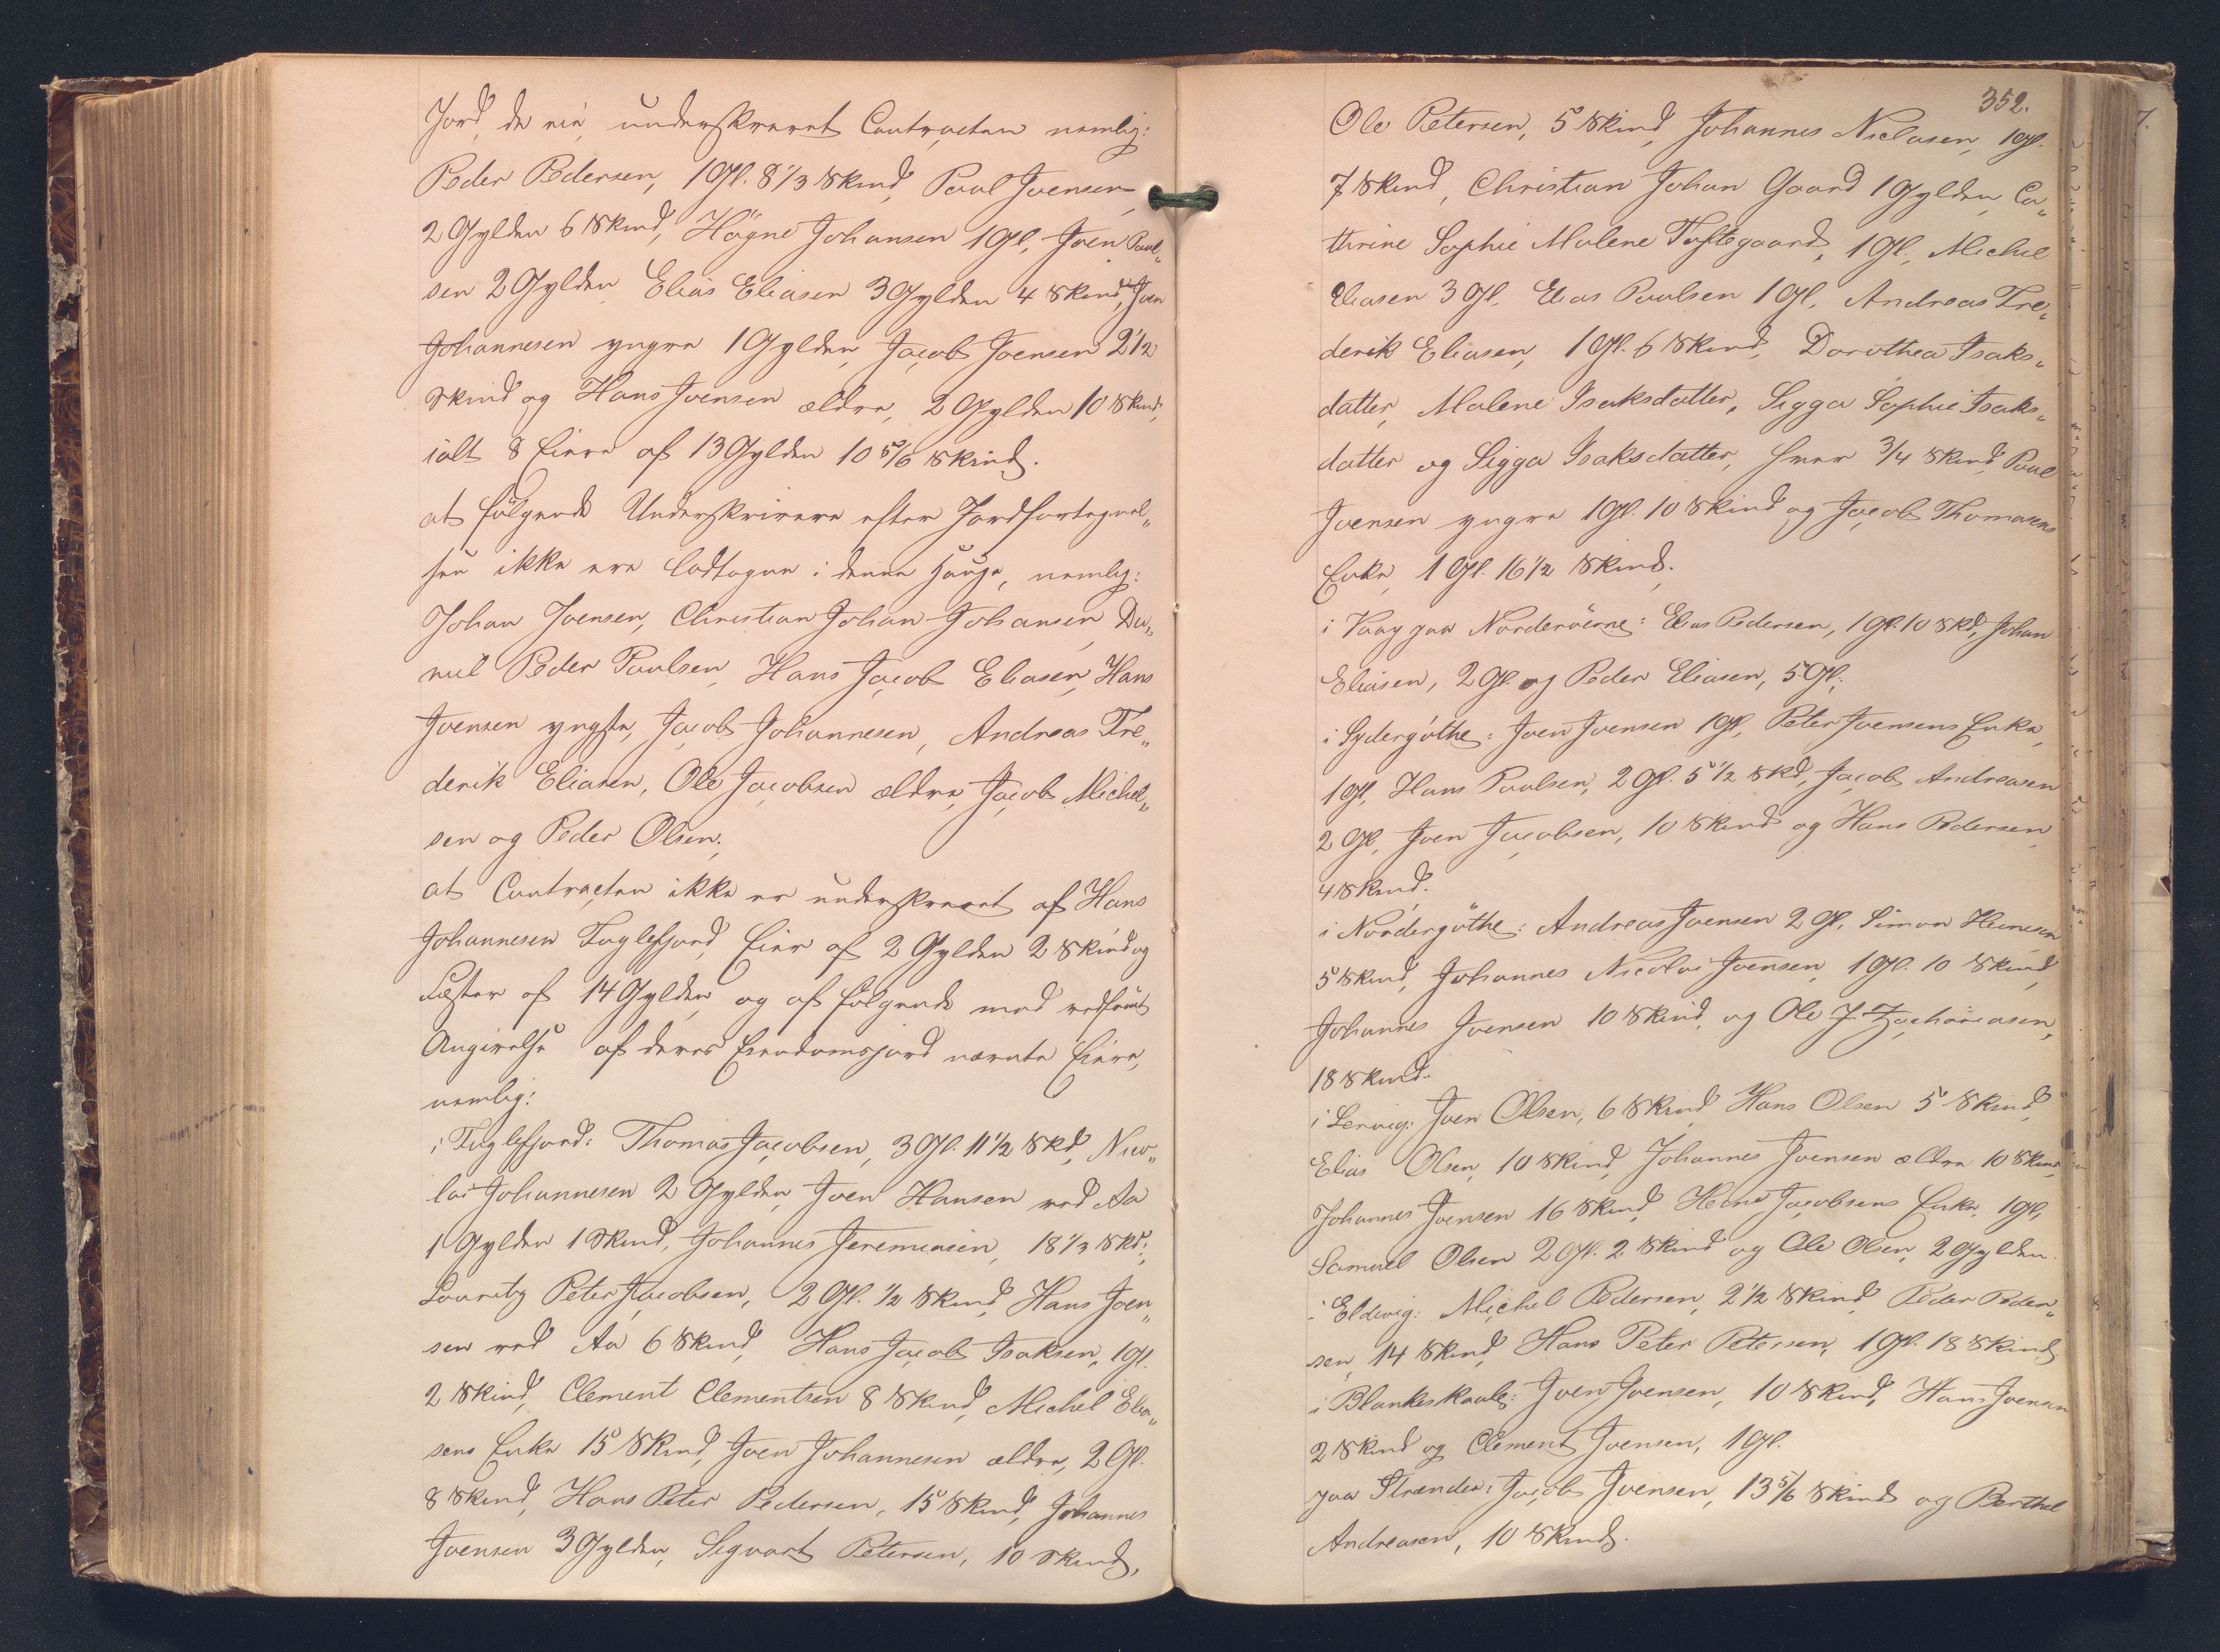 Jord, de eie, underskrevet Contracten nemlig:
Peder Pedersen, 1 Gl. 8 1/3 Skind, Poul Joensen,
2 Gylden 6 Skind, Högne Johansen 1 Gl, Joen Poul„
sen 2 Gylden Elias Eliasen 3 Gylden 4 Skind, Joen
Johannesen yngre 1 Gylden, Jacob Joensen 2 1/2
Skind og Hans Joensen ældre, 2 Gylden 10 Skind,
ialt 8 Eiere af 13 Gylden 10 5/6 Skind.
at følgende Underskrivere efter Jordfortegnel„
sen ikke ere lodtagne i denne Hauge, nemlig:
Johan Joensen, Christian Johan Johansen, Da„
niel Peder Poulsen, Hans Jacob Eliasen, Hans
Joensen yngste, Jacob Johannesen, Andreas Fre„
derik Eliasen, Ole Jacobsen ældre, Jacob Michel„
sen og Peder Olsen;
at Contracten ikke er underskrevet af Hans
Johannesen Fuglefjord, Eier af 2 Gylden 2 Skind og
Fæster af 14 Gylden, og af følgende med vedføiet
Angivelse af deres Eiendomsjord nævnte Eiere,
nemlig:
i Fuglefjord: Thomas Jacobsen, 3 Gl. 11 1/2 Skd, Nico„
lai Johannesen 2 Gylden, Joen Hansen ved Aa
1 Gylden 1 Skind, Johannes Jeremiasen, 18 1/3 Skd;
Lauritz Peter Jacobsen, 2 Gl. 1/2 Skind, Hans Joen„
sen ved Aa 6 Skind, Hans Jacob Isaksen, 1 Gl.
2 Skind, Clement Clementsen 8 Skind, Michel Elia„
sens Enke 15 Skind, Joen Johannesen ældre, 2 Gl.
8 Skind, Hans Peter Pedersen, 15 Skind, Johannes
Joensen 3 Gylden, Sigvart Petersen, 10 Skind,
352.
Ole Petersen, 5 Skind, Johannes Niclasen, 1 Gl.
7 Skind, Christian Johan Gaard 1 Gylden, Ca„
thrine Sophie Malene Toftegaard, 1 Gl, Michel
Eliasen 3 Gl, Elias Poulsen 1 Gl, Andreas Fre„
derik Eliasen, 1 Gl. 6 Skind, Dorothea Isaks„
datter, Malene Isaksdatter, Sigga Sophie Isaks„
datter og Sigga Isaksdatter, hver 3/4 Skind, Poul
Joensen yngre 1 Gl. 10 Skind og Jacob Thomasens
Enke, 1 Gl. 16 1/2 Skind.
i Vaag paa Norderöerne: Elias Pedersen, 1 Gl. 10 Skd, Johan
Eliasen, 2 Gl. og Peder Eliasen, 5 Gl;
i Sydergöthe: Joen Joensen 1 Gl, Peter Joensens Enke,
1 Gl, Hans Poulsen, 2 Gl. 5 1/2 Skd, Jacob Andreasen
2 Gl, Joen Jacobsen, 10 Skind og Hans Pedersen
4 Skind.
i Nordergöthe: Andreas Joensen 2 Gl, Simon Heinesen
5 Skind, Johannes Nicolai Joensen, 1 Gl. 10 Skind,
Johannes Joensen 10 Skind, og Ole J. Zachariasen,
18 Skind.
i Lervig: Joen Olsen, 6 Skind, Hans Olsen 5 Skind,
Elias Olsen, 10 Skind, Johannes Joensen ældre 10 Skind,
Johannes Joensen 16 Skind, Heine Jacobsens Enke, 1 Gl,
Samuel Olsen 2 Gl. 2 Skind og Ole Olsen, 2 Gylden
i Eldevig: Michel Pedersen, 2 1/2 Skind, Peder Peder„
sen, 14 Skind, Hans Peter Petersen, 1 Gl. 18 Skind
i Blankeskaale: Joen Joensen, 10 Skind, Hans Joensen
2 Skind og Clement Joensen, 1 Gl.
paa Strænder: Jacob Joensen, 13 5/6 Skind og Berthel
Andreasen, 10 Skind.